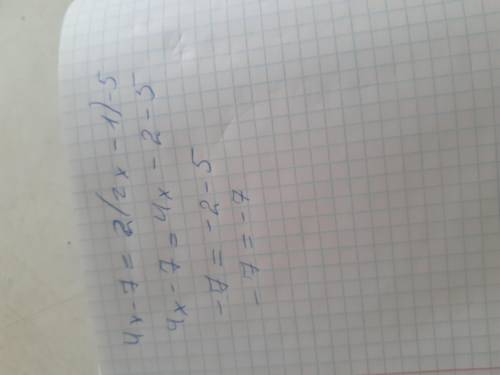 4x-7=2(2x-1)-5
4x-7=4x-2-5
-7=-2-5
-7=-7